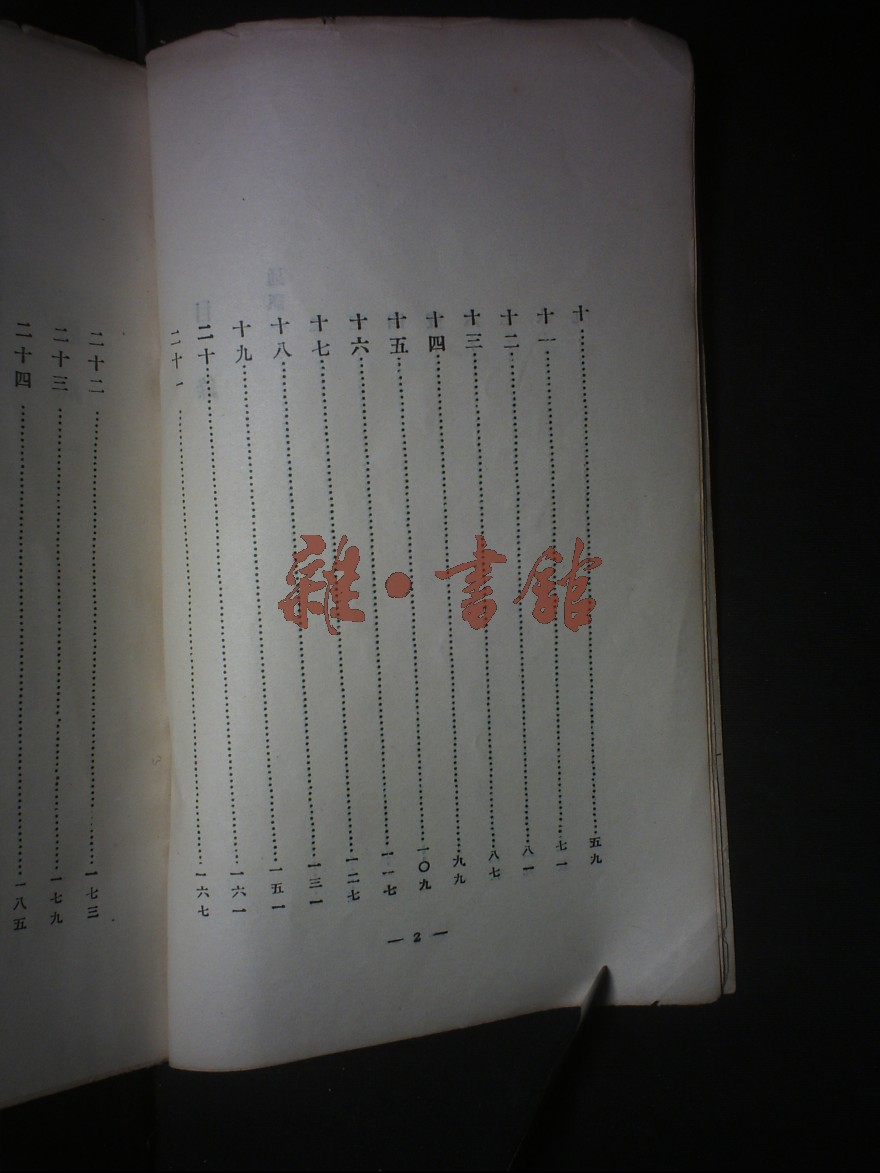 十……五九
十一……七一
十二……八一
十三……八七
十四……九九
十五……一〇九
十六……一一七
十七……一二七
十八……一三一
十九……一五一
二十……一六一
二十一……一六七
— 2 —
二十二……一七三
二十三……一七九
二十四……一八五
雜·書館